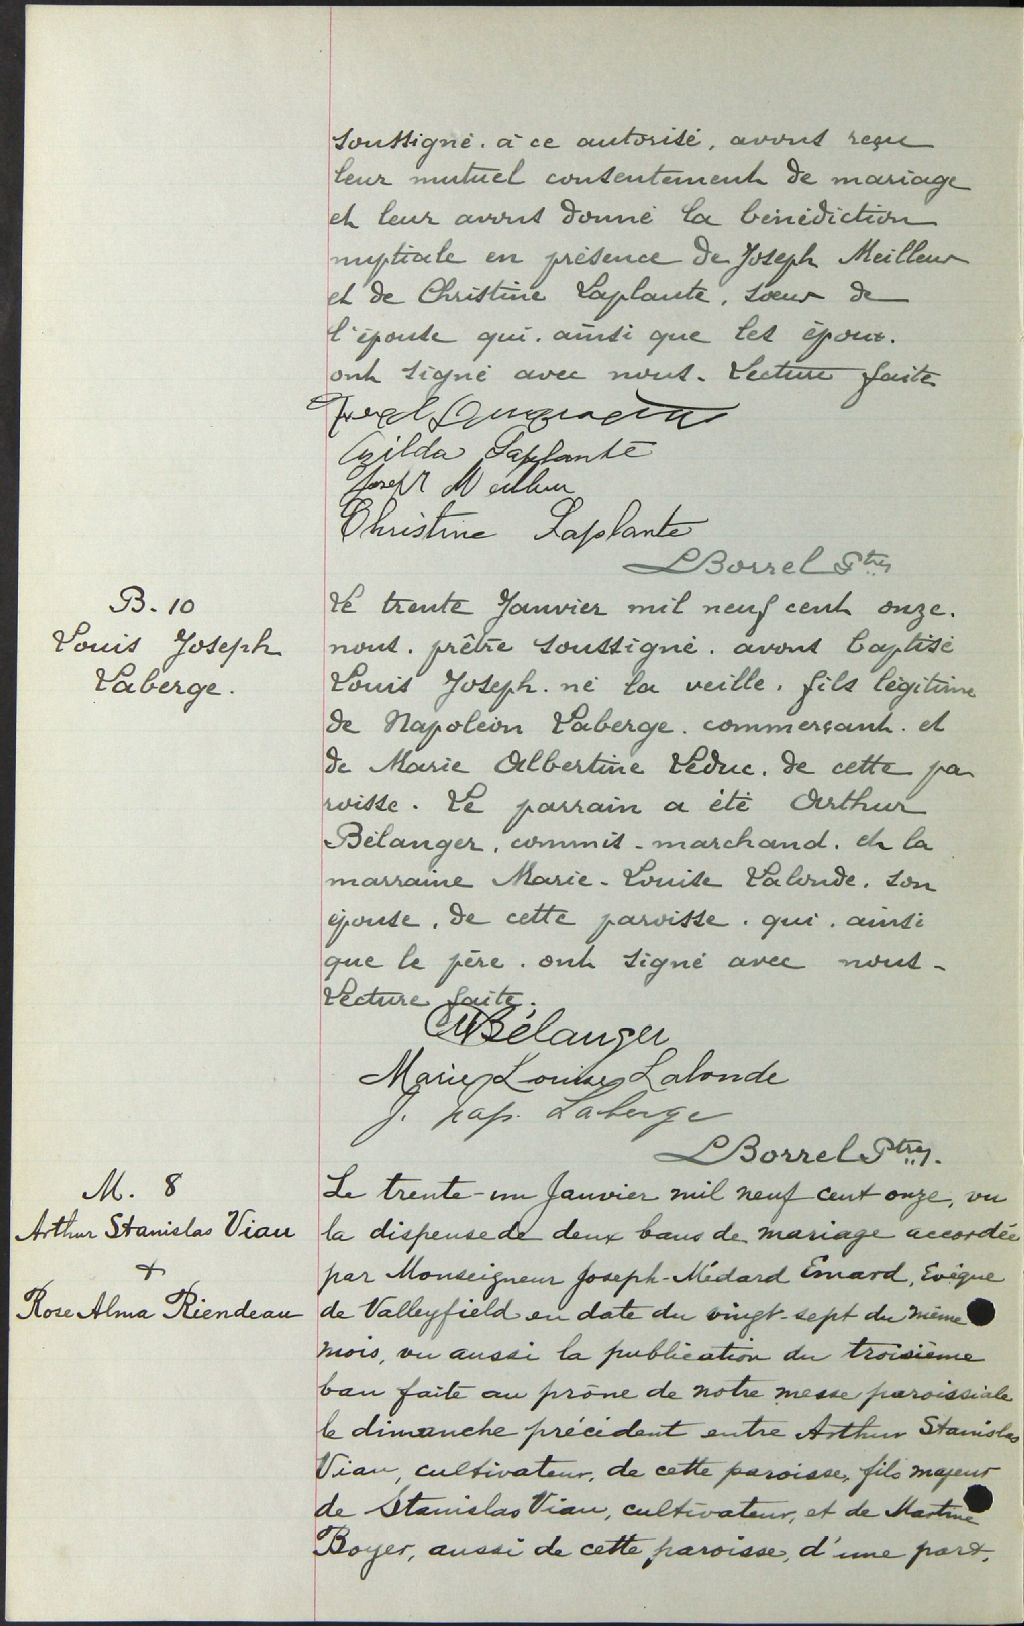 soussigné. à ce autorisé, avons reçu
leur mutuel consentement de mariage
et leur avons donné la bénédiction
nuptiale en présence de Joseph Meilleur
et de Christine Laplante, sœur de
l'épouse qui. ainsi que les époux.
ont signé avec nous. Lecture faite
Laplante
Joseph Meilleur
Christine Laplante
L Borrel Ptre
B. 10
Louis Joseph
Laberge.
Le trente Janvier mil neuf cent onze.
nous. prêtre soussigné. avons baptisé
Louis Joseph. né la veille. fils légitime
de Napoléon Laberge. commerçant. et
de Marie Albertine Leduc. de cette pa
roisse. Le parrain a été Arthur
Bélanger, commis-marchand. et la
marraine Marie-Louise Lalonde. son
épouse. de cette paroisse. qui. ainsi
que le père. ont signé avec nous-
Lecture faite.
Bélanger
Marie Louise Lalonde
J. Nap. Laberge
L Borrel Ptre.
M. 8
Arthur Stanislas Viau
+
Rose Alma Riendeau
Le trente-un Janvier mil neuf cent onze, vu
la dispense de deux bans de mariage accordée
par Monseigneur Joseph-Médard Emard, Evêque
de Valleyfield en date du vingt-sept du même
mois, vu aussi la publication du troisième
ban faite au prône de notre messe paroissiale
le dimanche précédent entre Arthur Stanislas
Viau, cultivateur, de cette paroisse, fils majeur
de Stanislas Viau, cultivateur, et de Martine
Boyer, aussi de cette paroisse, d'une part,